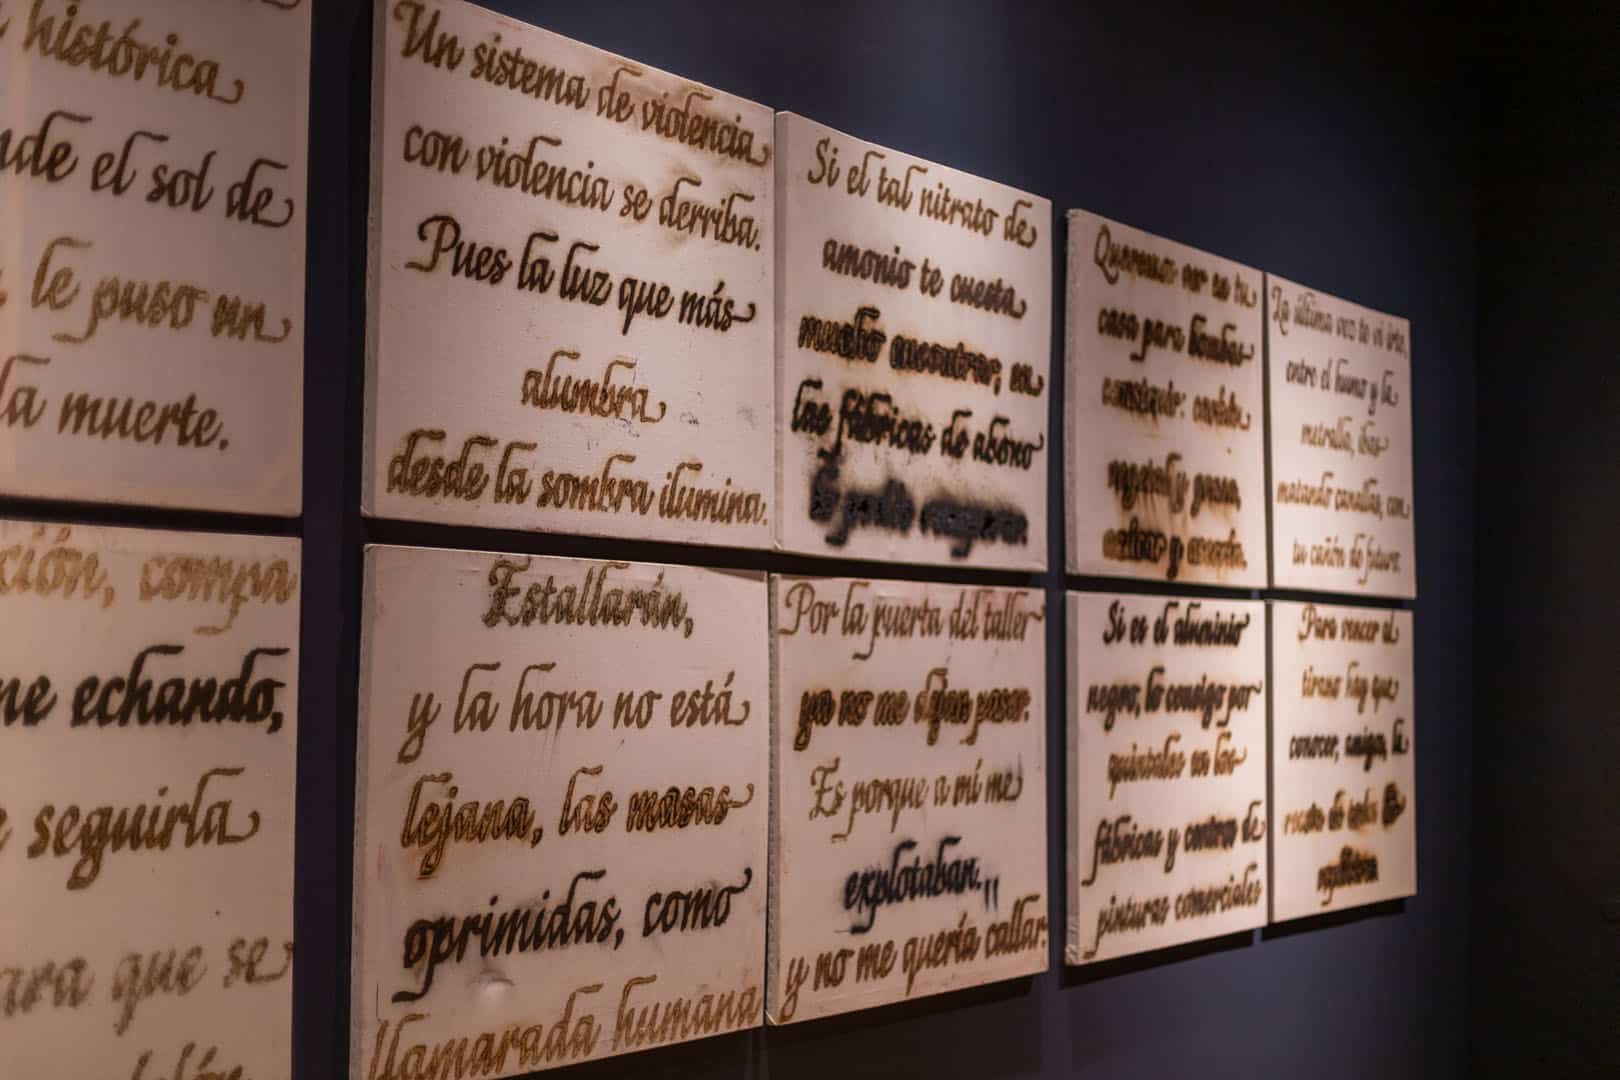 histórica
el sol de
le puso un
la muerte.
Un sistema de violencia
con violencia se derriba.
Pues la luz que más
alumbra
desde la sombra ilumina.
Si el tal nitrato de
amonio te cuesta
mucho encontrar, en
las fábricas de abono
lo podés
Queremos ver en tu
casa para bombas
conseguir:
vegetal y
azúcar y
La última vez te vi
entre el humo y la
metralla, ibas
matando canallas, con
tu cañón de futuro.
ción, compa
me echando,
seguirla
que se
Estallarán,
y la hora no está
lejana, las masas
oprimidas, como
llamarada humana
Por la puerta del taller
ya no me dejan pasar.
Es porque a mí me
explotaban...
y no me quería callar.
Si es el aluminio
negro, lo consigo por
quintales en las
fábricas y centros de
pinturas comerciales
Para vencer al
tirano hay que
conocer, amigo, la